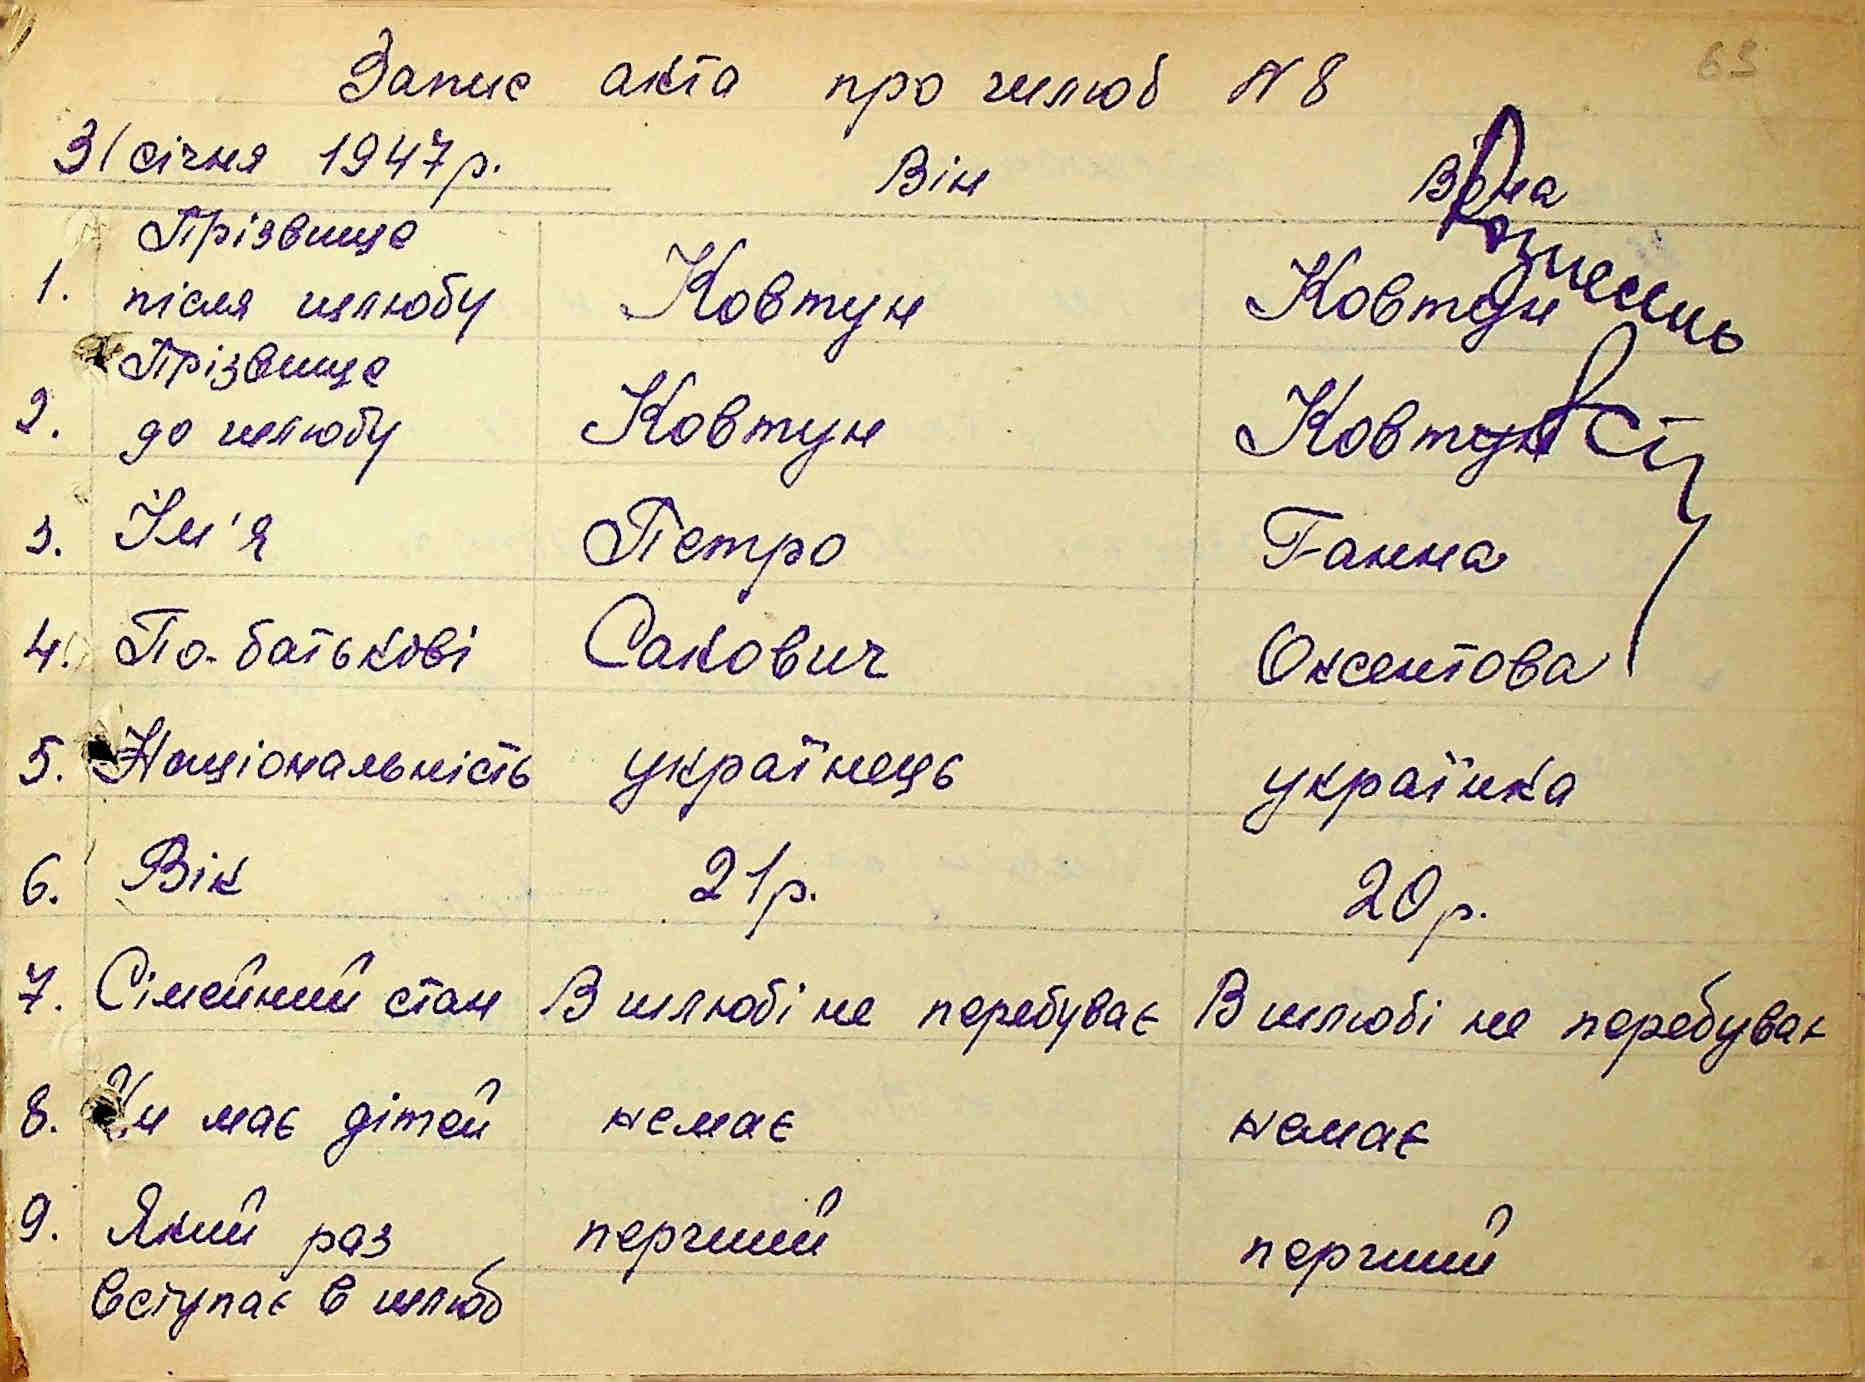 63
Запис акта про шлюб N 8
31 січня 1947 р.
Він Вона
1. Прізвище після шлюбу Ковтун Ковтун
2. Прізвище до шлюбу Ковтун Ковтун
3. Ім'я Петро Ганна
4. По-батькові Сакович Оксентова
5. Національність українець українка
6. Вік 21 р. 20 р.
7. Сімейний стан В шлюбі не перебуває В шлюбі не перебуває
8. Чи має дітей немає немає
9. Який раз вступає в шлюб перший перший